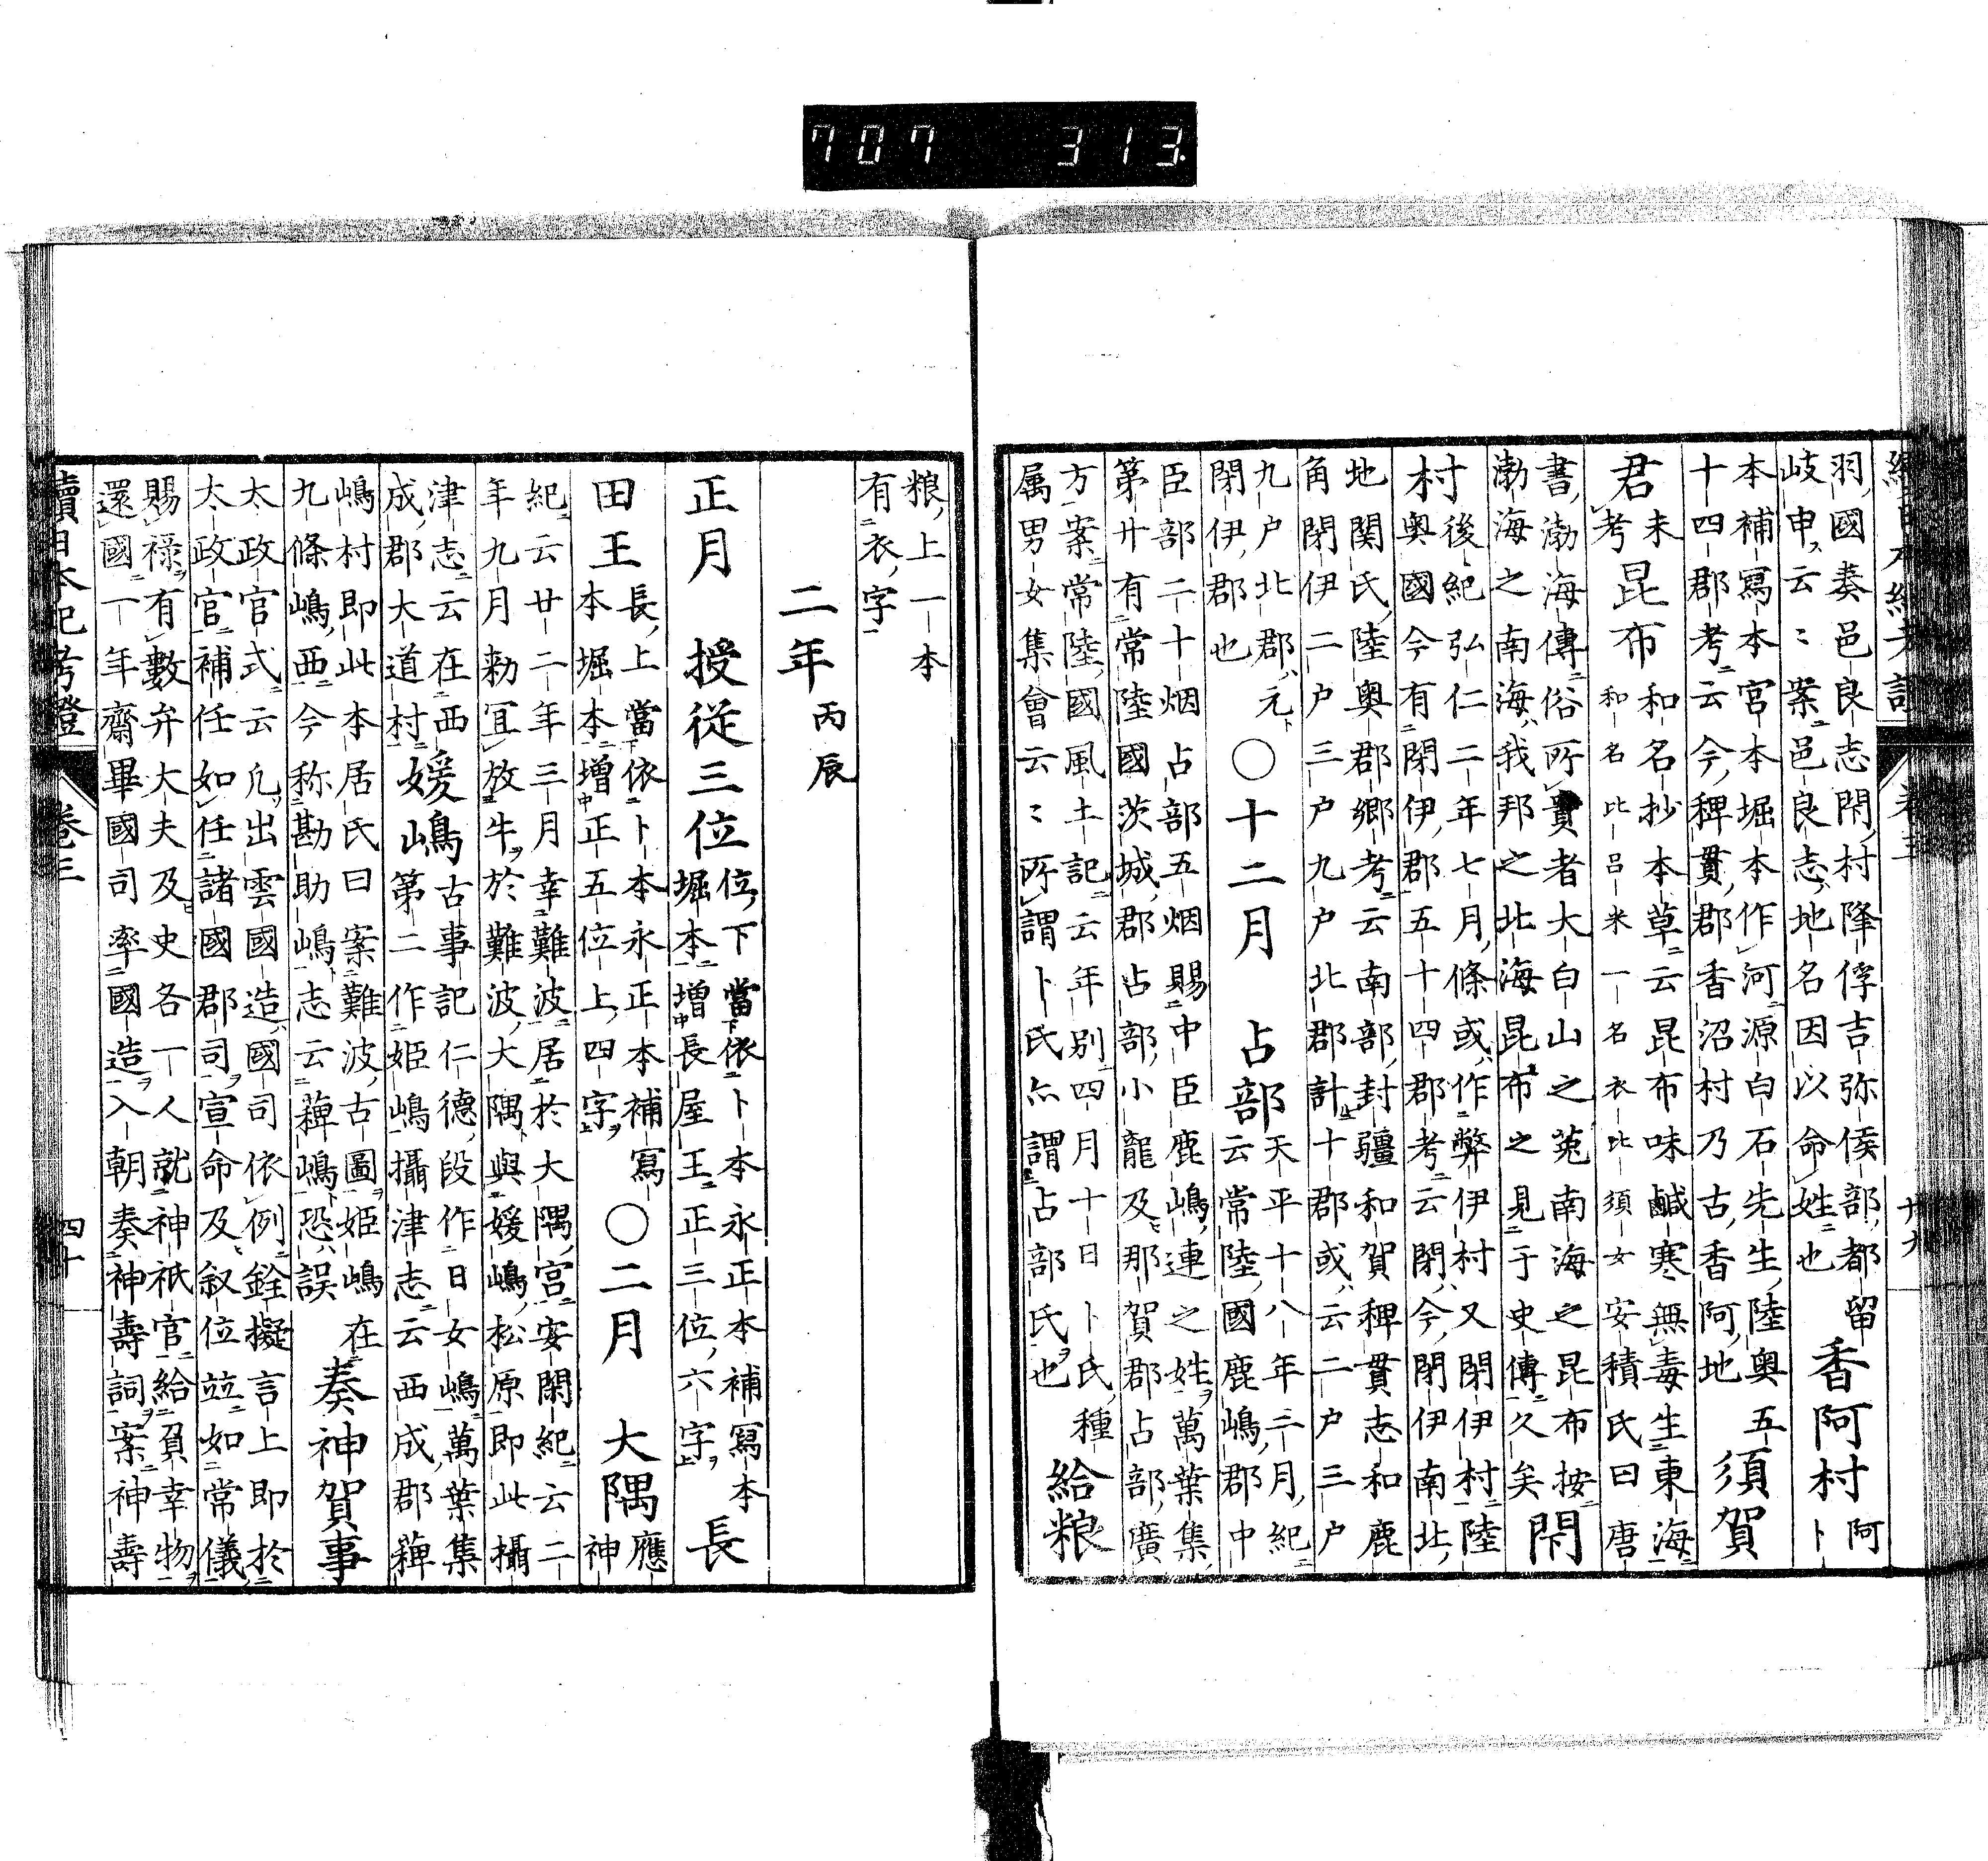 707 313
續日本紀考證 卷三 廿九
羽國奏邑良志閇村降俘吉弥侯部都留
岐申云〻案邑良志地名因以命姓也
香阿村
阿卜
本補寫本宮本堀本作河源白石先生陸奥五
十四郡考云今稗貫郡香沼村乃古香阿地
須賀
君
未考
昆布
和名抄本草云昆布味鹹寒無毒生東海
和名比呂米一名衣比須女安積氏曰唐
書渤海傳俗所貴者大白山之菟南海之昆布按
渤海之南海我邦之北海昆布之見于史傳久矣
閇
村
後紀弘仁二年七月條或作弊伊村又閉伊村陸
奥國今有閉伊郡五十四郡考云閉今閉伊南北
地関氏陸奥郡郷考云南部封疆和賀稗貫志和鹿
角閉伊二戸三戸九戸北郡計十郡或云二戸三戸
九戸北郡元
閉伊郡也
〇十二月
占部
天平十八年二月紀
云常陸國鹿嶋郡中
臣部二十烟占部五烟賜中臣鹿嶋連之姓萬葉集
第廿有常陸國茨城郡占部小龍及那賀郡占部廣
方案常陸國風土記云年別四月十日卜氏種
属男女集會云〻所謂卜氏亦謂占部氏也
給粮
粮上一本
有衣字
二年
丙辰
正月
授從三位
位下當依卜本永正本補寫本
堀本增長屋王正三位六字
長
田王
長上當依卜本永正本補寫
本堀本增正五位上四字
〇二月
大隅
應神
紀云廿二年三月幸難波居於大隅宮安閑紀云二
年九月勅冝放牛於難波大隅與媛嶋松原即此攝
津志云在西
成郡大道村
媛嶋
古事記仁德段作日女嶋萬葉集
第二作姫嶋攝津志云西成郡稗
嶋村即此本居氏曰案難波古圖姫嶋在
九條嶋西今称勘助嶋志云稗嶋恐誤
奏神賀事
太政官式云凢出雲國造國司依例銓擬言上即於
太政官補任如任諸國郡司宣命及叙位並如常儀
賜禄有數弁大夫及史各一人就神祇官給負幸物
還國一年齋畢國司率國造入朝奏神壽詞案神壽
續日本紀考證 卷三 四十